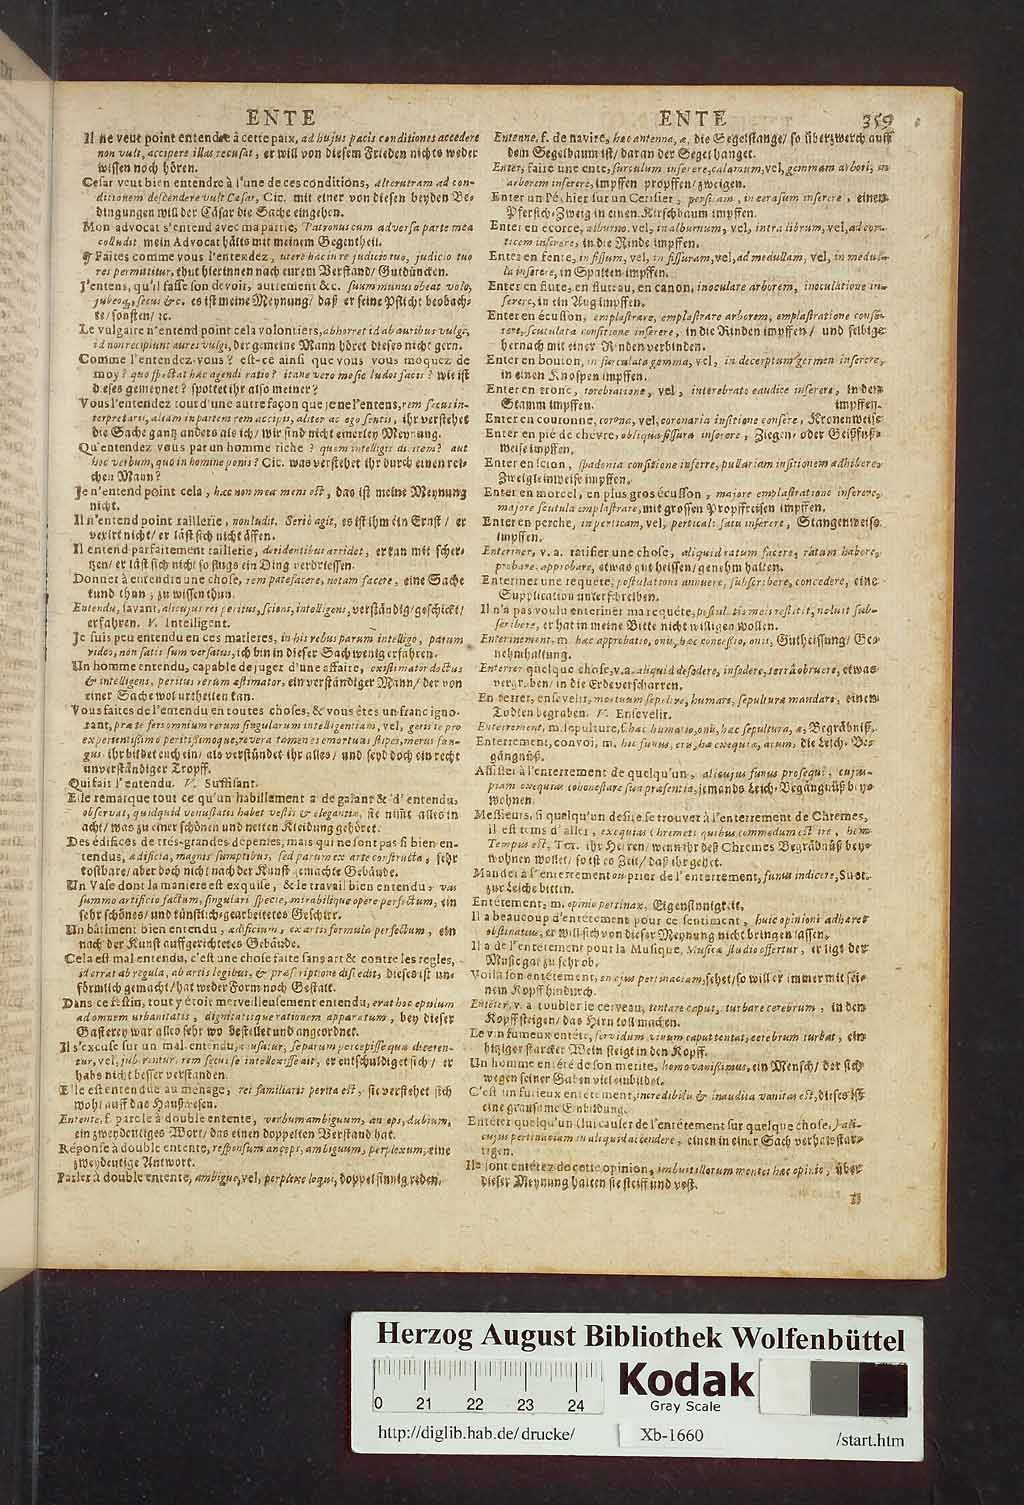 ENTE
Il ne veut point entendre à cette paix, ad hujus pacis conditiones accedere
non vult, accipere illas recusat, er will von diesem Frieden nichts weder
wissen noch hören.
Cesar veut bien entendre à l'une de ces conditions, alterutram ad con-
ditionem descendere vult Cæsar, Cic. mit einer von diesen beyden Be-
dingungen will der Cäsar die Sache eingehen.
Mon advocat s'entend avec ma partie, Patronus cum adversa parte mea
colludit mein Advocat hälts mit meinem Gegentheil.
¶ Faites comme vous l'entendez, utere hac in re judicio tuo, judicio tuo
res permittitur, thut hierinnen nach eurem Verstand/ Gutdüncken.
J'entens, qu'il fasse son devoir, autrement &c. suum munus obeat volo,
jubeoq, secus &c. es ist meine Meynung/ daß er seine Pflicht beobach-
te/ sonsten/ ꝛc.
Le vulgaire n'entend point cela volontiers, abhorret id ab auribus vulgi,
id non recipiunt aures vulgi, der gemeine Mann höret dieses nicht gern.
Comme l'entendez-vous? est-ce ainsi que vous vous moquez de
moy? quo spectat hac agendi ratio? itane vero mosic ludos facis? wie ist
dieses gemeynet? spottet ihr also meiner?
Vous l'entendez tout d'une autre façon que je ne l'entens, rem secus in-
terpretaris, aliam in partem rem accipis, aliter ac ego sentis, ihr verstehet
die Sache gantz anders als ich/ wir sind nicht einerley Meynung.
Qu'entendez vous par un homme riche? quem intelligis divitem? aut
hoc verbum, quo in homine ponis? Cic. was verstehet ihr durch einen rei-
chen Mann?
Je n'entend point cela, hæc non mea mens est, das ist meine Meynung
nicht.
Il n'entend point raillerie, non ludit. Seriò agit, es ist ihm ein Ernst/ er
vexirt nicht/ er läst sich nicht äffen.
Il entend parfaitement raillerie, deridentibus arridet, er kan mit scher-
tzen/ er läst sich nicht/ so flugs ein Ding verdriessen.
Donner à entendre une chose, rem patefacere, notam facere, eine Sache
kund thun, zu wissen thun.
Entendu, savant, alicujus rei peritus, sciens, intelligens, verständig/ geschickt/
erfahren. V. Intelligent.
Je suis peu entendu en ces matieres, in his rebus parum intelligo, parum
video, non satis sum versatus, ich bin in dieser Sach wenig erfahren.
Un homme entendu, capable de juger d'une affaite, existimator doctus
& intelligens, peritus rerum æstimator, ein verständiger Mann/ der von
einer Sache wol urtheilen kan.
Vous faites de l'entendu en toutes choses, & vous êtes un franc igno-
rant, præ te fers omnium rerum singularum intelligentiam, vel, geris te pro
expertentissimo peritissimoque, revera tamen es emortuus stipes, merus fun-
gus, ihr bildet euch ein/ als verständet ihr alles/ und seyd doch ein recht
unverständiger Tropff.
Qui fait l'entendu. V. Suffisant.
Elle remarque tout ce qu'un habillement a de galant & d'entendu,
observat, quidquid venustatis habet vestis & elegantiæ, sie nimt alles in
acht/ was zu einer schönen und netten Kleidung gehöret.
Des édifices de trés-grandes dépenses, mais qui ne sont pas si bien en-
tendus, ædificia, magnis sumptibus, sed parum ex arte constructa, sehr
kostbare/ aber doch nicht nach der Kunst gemachte Gebäude.
Un Vase dont la maniere est exquise, & le travail bien entendu, vas
summo artificio factum, singulari specie, mirabilique opere perfectum, ein
sehr schönes/ und künstlich-gearbeitetes Geschirr.
Un bâtiment bien entendu, ædificium, ex artis formulo perfectum, ein
nach der Kunst auffgerichtetes Gebäude.
Cela est mal entendu, c'est une chose faite sans art & contre les regles,
id errat ab regula, ab artis legibus, & præscriptione discedit, dieses ist un-
förmlich gemacht/ hat weder Form noch Gestalt.
Dans ce festin, tout y étoit merveilleusement entendu, erat hoc epulum
ad omnem urbanitatis, dignitatisque rationem apparatum, bey dieser
Gasterey war alles sehr wol bestellet und angeordnet.
Il s'excuse sur un mal-entendu, causatur, se parum percepisse quæ diceren-
tur, vel, jub rantur, rem secus se intellexisse ait, er entschuldiget sich/ er
habs nicht besser verstanden.
Elle est entendue au ménage, rei familiaris perita est, sie verstehet sich
wohl auff das Haußwesen.
Entente, f. parole à double entente, verbum ambiguum, anceps, dubium,
ein zweydeutiges Wort/ das einen doppelten Verstand hat.
Réponse à double entente, responsum anceps, ambiguum, perplexum, eine
zweydeutige Antwort.
Parler à double entente, ambigue, vel, perplexe loqui, doppelsinnig reden.
ENTE 359
Entenne, f. de navire, hæc antenna, æ, die Segelstange/ so überzwerch auff
dem Segelbaum ist/ daran der Segel hanget.
Enter, faire une ente, surculum inserere, calamum, vel, gemmam arbori, in
arborem inserere, impffen propffen/ zweigen.
Enter un Pêchier sur un Cerisier, persicam, in cerasum inserere, einen
Pfersich-Zweig in einen Kirschbaum impffen.
Enter en écorce, alburno, vel, in alburnum, vel, intra librum, vel, ad cor-
ticem inserere, in die Rinde impffen.
Enter en fente, in fissum, vel, in fissuram, vel, ad medullam, vel, in medul-
la inserere, in Spalten impffen.
Enter en flute, en fluteau, en canon, inoculare arborem, inoculatione in-
serere, in ein Aug impffen.
Enter en écusson, emplastrare, emplastrare arborem, emplastratione conse-
rere, scutulata consitione inserere, in die Rinden impffen/ und selbige
hernach mit einer Rinden verbinden.
Enter en bouton, in surculata gemma, vel, in decerptum germen inserere,
in einen Knospen impffen.
Enter en tronc, terebratione, vel, interebrato caudice inserere, in dem
Stamm impffen. impffen.
Enter en couronne, corona, vel, coronaria insitione consere, Kronenweise
Enter en pié de chevre, obliqua fissura inserere, Ziegen- oder Geißfuß-
weise impffen.
Enter en scion, spadonia consitione inserre, pullariam insitionem adhibere,
Zweigleinweise impffen.
Enter en morcel, en plus gros écusson, majore emplastratione inserere,
majore scutula emplastrare, mit grossen Propffreisen impffen.
Enter en perche, in perticam, vel, perticali satu inserere, Stangenweise
impffen.
Enteriner, v. a. ratifier une chose, aliquid ratum facere, ratum habere,
probare, approbare, etwas gut heissen/ genehm halten.
Enteriner une requête, postulationi annuere, subscribere, concedere, eine
Supplication unterschreiben.
Il n'a pas voulu enteriner ma requête, postulatis meis restitit, noluit sub-
scribere, er hat in meine Bitte nicht willigen wollen.
Enterinement, m. hæc approbatio, onis, hæc concessio, onis, Gutheissung/ Ge-
nehmhaltung.
Enterrer quelque chose, v. a. aliquid defodere, infodere, terrâ obruere, etwas
vergraben/ in die Erde verscharren.
Enterrer, ensevelir, mortuum sepelire, humare, sepulturæ mandare, einen
Todten begraben. V. Ensevelir.
Enterrement, m. sepulture, f. hæc humatio, onis, hæc sepultura, æ, Begräbniß.
Enterrement, convoi, m. hoc funus, eris, hæ exequiæ, arum, die Leich-Be-
gängnüß.
Assister à l'enterrement de quelqu'un, alicujus funus prosequi, cujus-
piam exequias cohonestare sua præsentia, jemands Leich-Begängnüß bey-
wohnen.
Messieurs, si quelqu'un desire se trouver à l'enterrement de Chremes,
il est tems d'aller, exequias Chremeti quibus commodum est ire, hem
Tempus est, Ter. ihr Herren/ wenn ihr deß Chremes Begräbnüß bey-
wohnen wollet/ so ist es Zeit/ daß ihr gehet.
Mander à l'enterrement ou prier de l'enterrement, funus indicere, Suet.
zur Leiche bitten.
Entêtement, m. opinio pertinax, Eigensinnigkeit.
Il a beaucoup d'entêtement pour ce sentiment, huic opinioni adhæret
obstinatius, er will sich von dieser Meynung nicht bringen lassen.
Il a de l'entêtement pour la Musique, Musicæ studio effertur, er ligt der
Music gar zu sehr ob.
Voila son entêtement, en ejus pertinaciam, sehet/ so will er immer mit sei-
nem Kopff hindurch.
Entêter, v. a. toubler le cerveau, tentare caput, turbare cerebrum, in den
Kopff steigen/ das Hirn toll machen.
Le vin fumeux entête, fervidum vinum caput tentat, cerebrum turbat, ein
hitziger starcker Wein steigt in den Kopff.
Un homme entêté de son merite, homo vanissimus, ein Mensch/ der sich
wegen seiner Gaben viel einbildet.
C'est un furieux entêtement, incredibilis & inaudita vanitas est, dieses ist
eine grausame Einbildung.
Entêter quelqu'un (lui causer de l'entêtement sur quelque chose,) ali-
cujus pertinaciam in aliquid accendere, einen in einer Sach verhalsstar-
rigen.
Ils sont entêtez de cette opinion, imbuit illorum mentes hæc opinio, über
dieser Meynung halten sie steiff und vest.
Herzog August Bibliothek Wolfenbüttel
0 21 22 23 24
Kodak
Gray Scale
http://diglib.hab.de/drucke/
Xb-1660
/start.htm